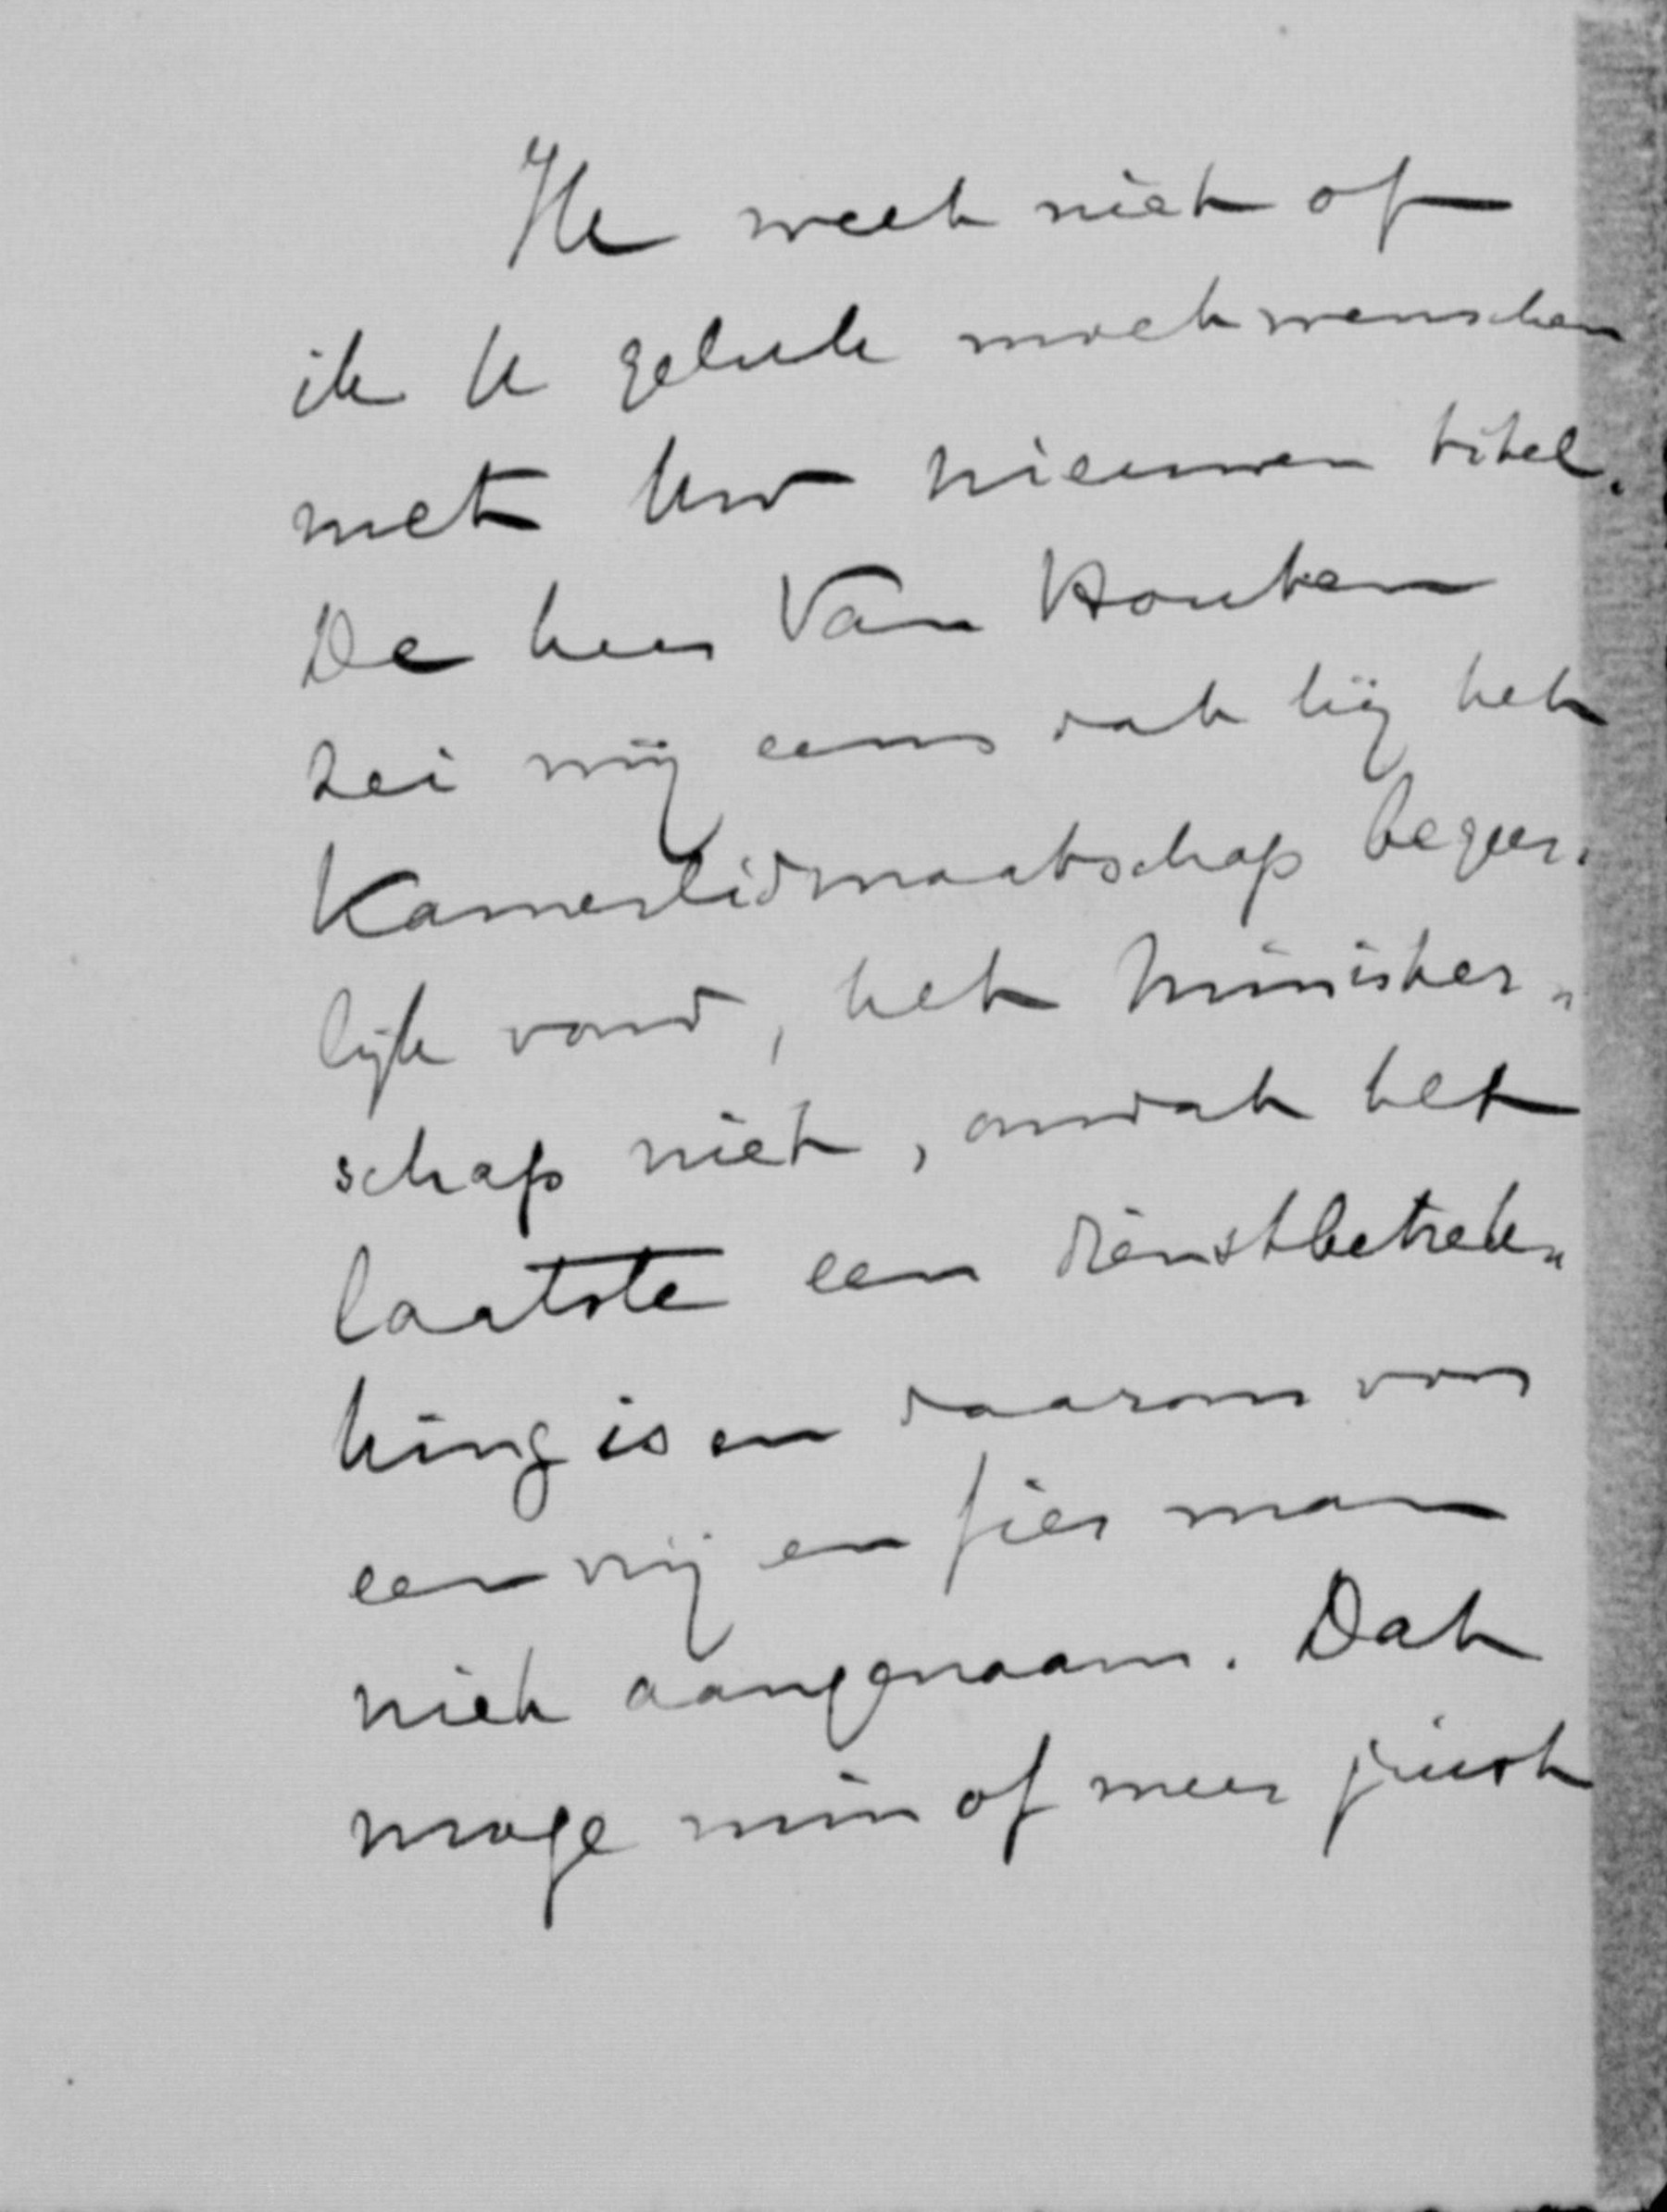 Ik weet niet of
ik U geluk moet wenschen
met Uw nieuwen titel.
De heer Van Houten
zei mij eens dat hij het
Kamerlidmaatschap begeer-
lijk vond, het minister-
schap niet, omdat het
laatste een dienstbetrek-
king is en daarom voor
een vrij en fier man
niet aangenaam. Dat
moge min of meer juist